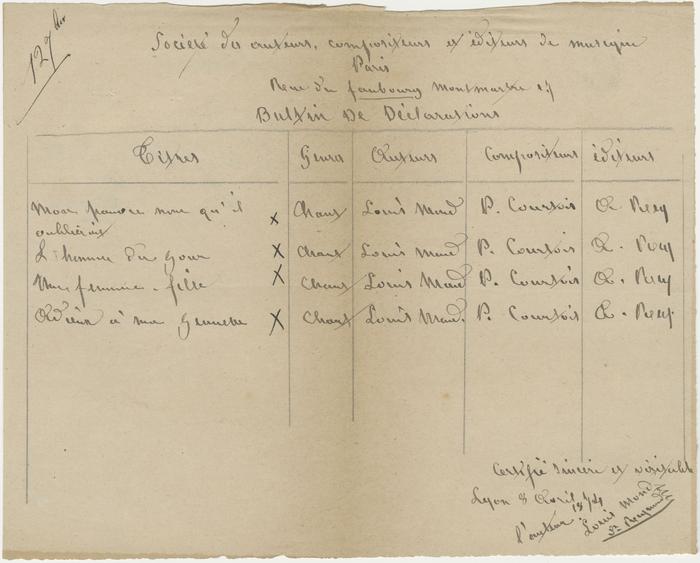 Société des auteurs, compositeurs et éditeurs de musique
Paris
Rue du faubourg Montmartre 17
Bultin De Déclarations
Titres Genres Auteurs Compositeurs éditeurs
Mon pauvre nom qu'il oublierais x Chant Louis Mond P. Courtois A. Rey
L'homme du jour x Chant Louis Mond P. Courtois A. Rey
Une femme fille x Chant Louis Mond P. Courtois A. Rey
Adieux à ma x Chant Louis Mond. P. Courtois A. Rey.
Certifié sincère et véritable
Lyon 8 Avril
l'auteur Louis Mond